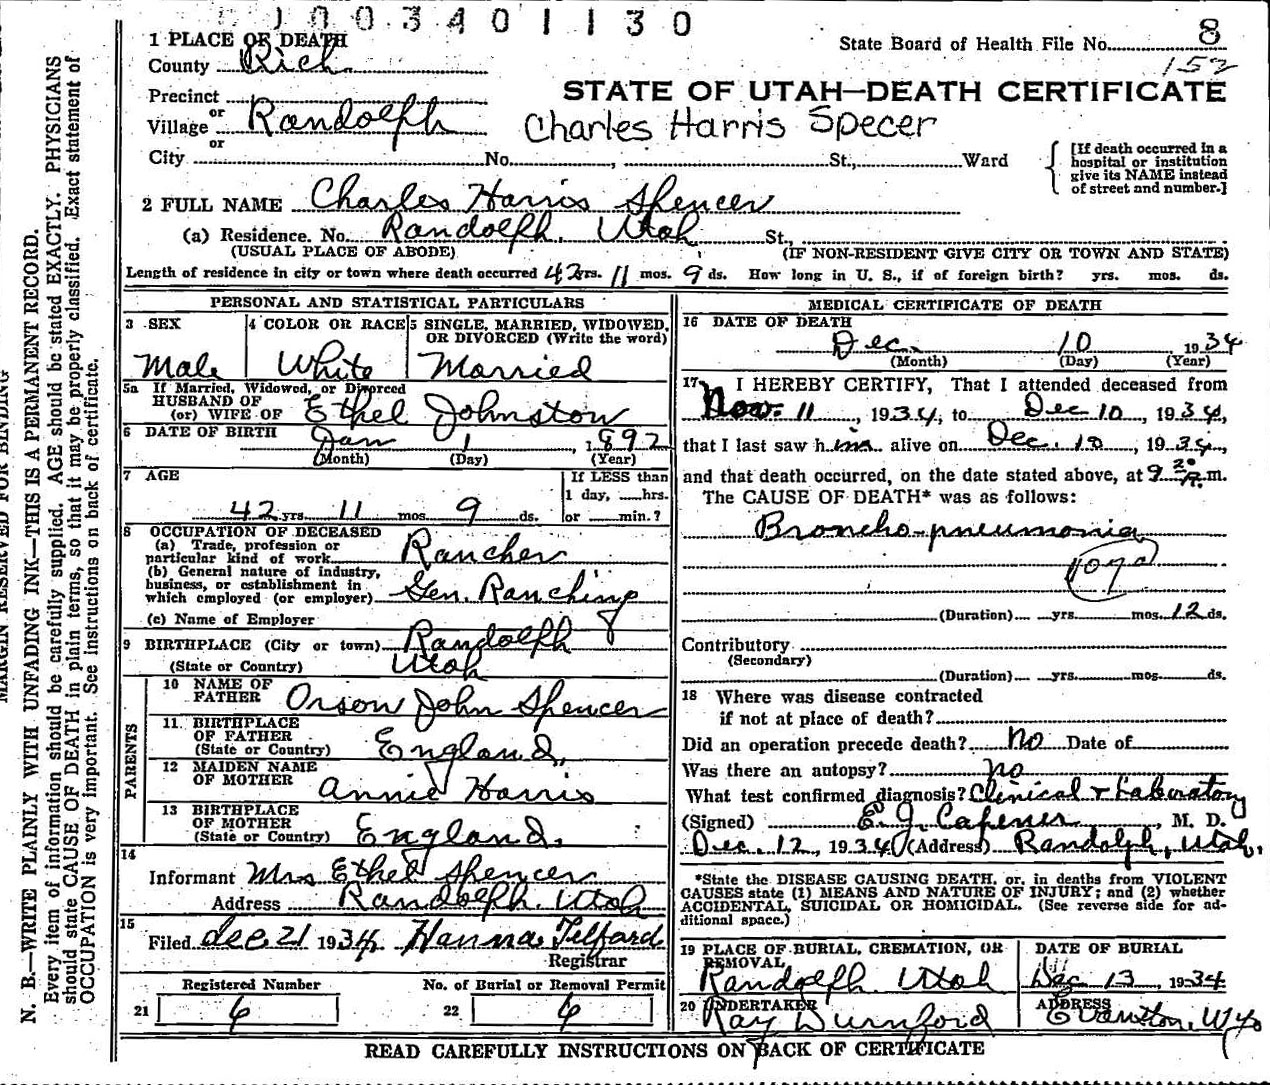 1003401130
1 PLACE OF DEATH
State Board of Health File No. 8
County Rich
152
STATE OF UTAH—DEATH CERTIFICATE
Precinct
or
Village Randolph
Charles Harris Specer
or
City No. , St., Ward
[If death occurred in a
hospital or institution
give its NAME instead
of street and number.]
2 FULL NAME Charles Harris Spencer
(a) Residence. No. Randolph. Utah St.,
(USUAL PLACE OF ABODE) (IF NON-RESIDENT GIVE CITY OR TOWN AND STATE)
Length of residence in city or town where death occurred 42 yrs. 11 mos. 9 ds. How long in U. S., if of foreign birth? yrs. mos. ds.
PERSONAL AND STATISTICAL PARTICULARS
3 SEX 4 COLOR OR RACE 5 SINGLE, MARRIED, WIDOWED,
OR DIVORCED (Write the word)
Male White Married
5a If Married, Widowed, or Divorced
HUSBAND OF
(or) WIFE OF Ethel Johnston
6 DATE OF BIRTH Jan 1, 1892
(Month) (Day) (Year)
7 AGE If LESS than
1 day, hrs.
42 yrs. 11 mos. 9 ds. or min.?
8 OCCUPATION OF DECEASED
(a) Trade, profession or
particular kind of work Rancher
(b) General nature of industry,
business, or establishment in
which employed (or employer) Gen. Ranching
(c) Name of Employer
9 BIRTHPLACE (City or town) Randolph
(State or Country) Utah
PARENTS
10 NAME OF
FATHER Orson John Spencer
11 BIRTHPLACE
OF FATHER
(State or Country) England.
12 MAIDEN NAME
OF MOTHER Annie Harris
13 BIRTHPLACE
OF MOTHER
(State or Country) England.
14
Informant Mrs Ethel Spencer
Address Randolph. Utah
15
Filed Dec 21 1934 Hanna Telford
Registrar
Registered Number No. of Burial or Removal Permit
21 6 22 6
MEDICAL CERTIFICATE OF DEATH
16 DATE OF DEATH
Dec. 10 1934
(Month) (Day) (Year)
17 I HEREBY CERTIFY, That I attended deceased from
Nov. 11, 1934, to Dec 10, 1934,
that I last saw him alive on Dec. 10, 1934,
and that death occurred, on the date stated above, at 9 m.
The CAUSE OF DEATH* was as follows:
Broncho-pneumonia
107a
(Duration) yrs. mos. 12 ds.
Contributory
(Secondary)
(Duration) yrs. mos. ds.
18 Where was disease contracted
if not at place of death?
Did an operation precede death? No Date of
Was there an autopsy? no
What test confirmed diagnosis? Clinical & Laboratory
(Signed) E. J. Capener, M. D.
Dec. 12, 1934 (Address) Randolph, Utah.
*State the DISEASE CAUSING DEATH, or, in deaths from VIOLENT
CAUSES state (1) MEANS AND NATURE OF INJURY; and (2) whether
ACCIDENTAL, SUICIDAL OR HOMICIDAL. (See reverse side for ad-
ditional space.)
19 PLACE OF BURIAL, CREMATION, OR DATE OF BURIAL
REMOVAL
Randolph. Utah Dec 13, 1934
20 UNDERTAKER ADDRESS
Ray Durnford Evanston, Wyo
READ CAREFULLY INSTRUCTIONS ON BACK OF CERTIFICATE
MARGIN RESERVED FOR BINDING
N. B.—WRITE PLAINLY WITH UNFADING INK—THIS IS A PERMANENT RECORD.
Every item of information should be carefully supplied. AGE should be stated EXACTLY. PHYSICIANS
should state CAUSE OF DEATH in plain terms, so that it may be properly classified. Exact statement of
OCCUPATION is very important. See instructions on back of certificate.